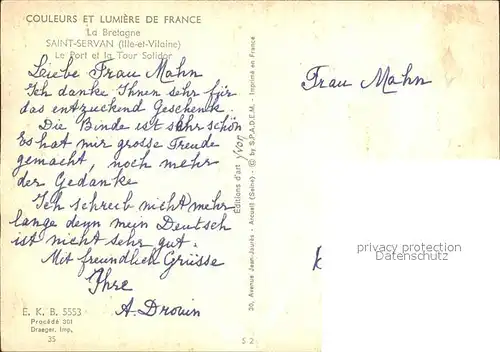 COULEURS ET LUMIÈRE DE FRANCE
La Bretagne
SAINT-SERVAN (Ille-et-Vilaine)
Le Port et la Tour Solidor
Liebe Frau Mahn
Ich danke Ihnen sehr für
das entzuckend Geschenk.
Die Binde ist sehr schön
Es hat mir grosse Freude
gemacht, noch mehr
der Gedanke
Ich schreib nicht mehr
lange denn mein Deutsch
ist nicht sehr gut.
Mit freundlich Grüsse
Ihre
A. Drouin
E. K. B. 5553
Procédé 301
Draeger, Imp,
35
S 2
Editions d'art Yvon
20, Avenue Jean-Jaurès - Arcueil (Seine) - © by S.P.A.D.E.M. - Imprimé en France
Frau Mahn
privacy protection
Datenschutz